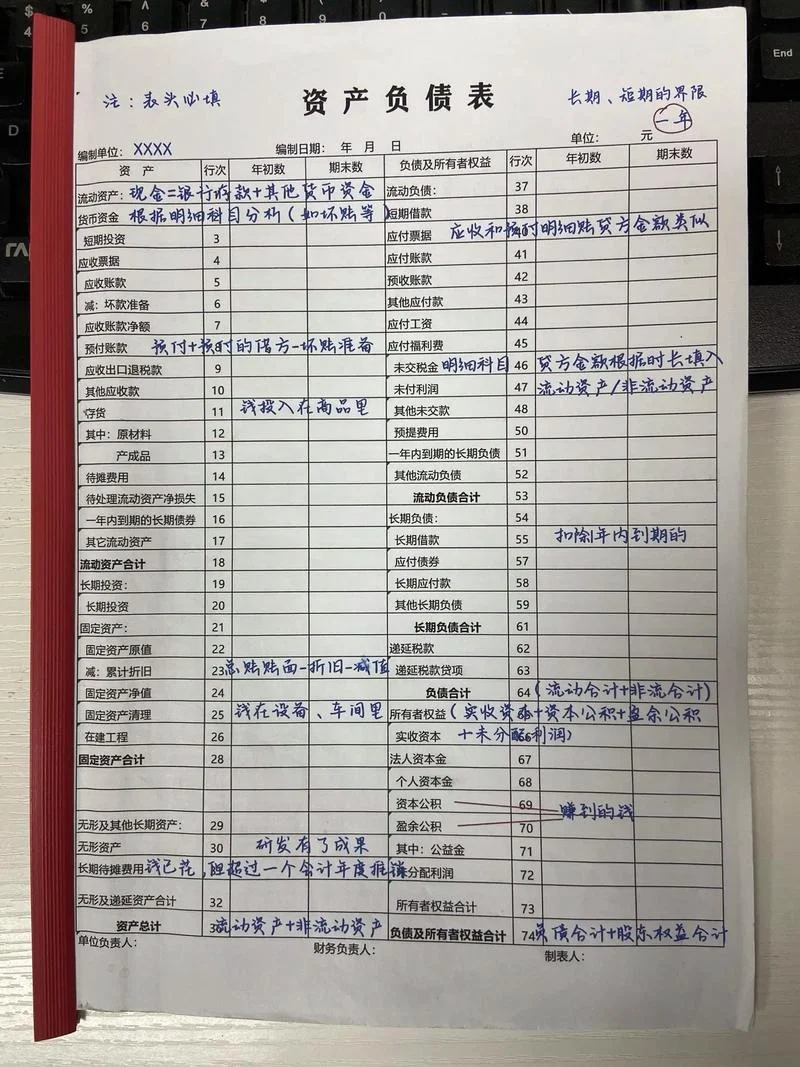 注：表头必填
资产负债表
长期、短期的界限
一年
编制单位：XXXX 编制日期： 年 月 日 单位： 元
资 产 行次 年初数 期末数 负债及所有者权益 行次 年初数 期末数
流动资产：现金=银行存款+其他货币资金 流动负债： 37
货币资金 根据明细科目分析（如坏账等） 短期借款 38
短期投资 3 应付票据 应收和预付明细账贷方金额类似
应收票据 4 应付账款 41
应收账款 5 预收账款 42
减：坏款准备 6 其他应付款 43
应收账款净额 7 应付工资 44
预付账款 预付+预时的借方-坏账准备 应付福利费 45
应收出口退税款 9 未交税金 明细科目 46 贷方金额根据时长填入
其他应收款 10 未付利润 47 流动资产/非流动资产
存货 11 钱投入在商品里 其他未交款 48
其中：原材料 12 预提费用 50
产成品 13 一年内到期的长期负债 51
待摊费用 14 其他流动负债 52
待处理流动资产净损失 15 流动负债合计 53
一年内到期的长期债券 16 长期负债： 54
其它流动资产 17 长期借款 55 扣除1年内到期的
流动资产合计 18 应付债券 57
长期投资： 19 长期应付款 58
长期投资 20 其他长期负债 59
固定资产： 21 长期负债合计 61
固定资产原值 22 递延税款 62
减：累计折旧 23 总账账面-折旧-减值 递延税款贷项 63
固定资产净值 24 负债合计 64（流动合计+非流合计）
固定资产清理 25 钱在设备、车间里 所有者权益（实收资本+资本公积+盈余公积
在建工程 26 实收资本 66 +未分配利润）
固定资产合计 28 法人资本金 67
个人资本金 68
资本公积 69 赚到的钱
无形及其他长期资产： 29 盈余公积 70
无形资产 30 研发有了成果 其中：公益金 71
长期待摊费用 钱已花，但超过一个会计年度摊销 未分配利润 72
无形及递延资产合计 32 所有者权益合计 73
资产总计 流动资产+非流动资产 负债及所有者权益合计 74 负债合计+股东权益合计
单位负责人： 财务负责人： 制表人：